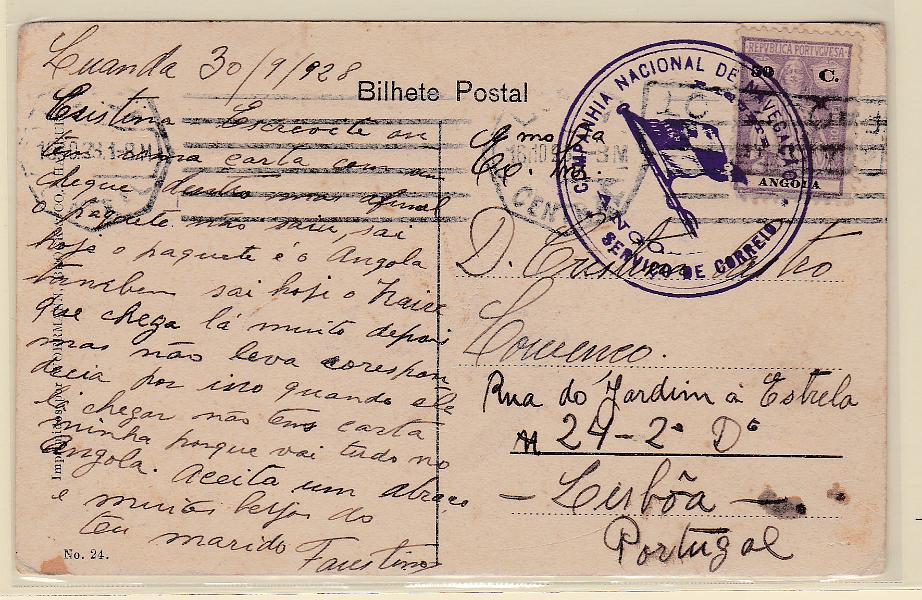 Luanda 30/9/928
Bilhete Postal
Cristina Escrevete
uma carta com um
cheque dentro mas afinal
o paquete não saiu, sai
hoje o paquete é o Angola
tambem sai hoje o
que chega lá muito depois
mas não leva correspon
decia por isso quando ele
chegar não tens carta
minha porque vai tudo no
Angola. Aceita um abraço
e muitos beijos do
teu marido Faustino
No. 24.
Exma Sra
D. Cristina Castro
Lourenço.
Rua do Jardim à Estrela
24-2º Dº
Lisbôa
Portugal
COMPANHIA NACIONAL DE NAVEGAÇÃO
SERVIÇO DE CORREIO
REPVBLICA PORTVGVESA
50 C.
ANGOLA
CENTRAL